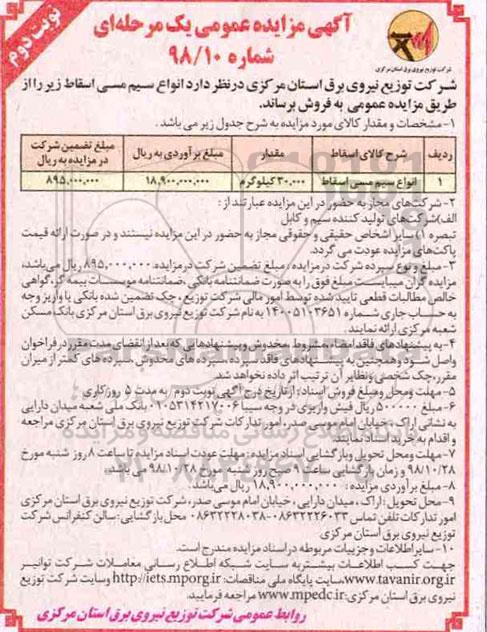 نوبت دوم
آگهی مزایده عمومی یک مرحله‌ای
شماره ۹۸/۱۰
شرکت توزیع نیروی برق استان مرکزی
شرکت توزیع نیروی برق استان مرکزی درنظر دارد انواع سیم مسی اسقاط زیر را از
طریق مزایده عمومی به فروش برساند.
۱- مشخصات و مقدار کالای مورد مزایده به شرح جدول زیر می باشد .
ردیف شرح کالای اسقاط مقدار مبلغ برآوردی به ریال مبلغ تضمین شرکت در مزایده به ریال
۱ انواع سیم مسی اسقاط ۳۰،۰۰۰ کیلوگرم ۱۸,۹۰۰,۰۰۰,۰۰۰ ۸۹۵,۰۰۰,۰۰۰
۲- شرکت‌های مجاز به حضور در این مزایده عبارتند از :
الف)شرکت‌های تولید کننده سیم و کابل
تبصره ۱) سایر اشخاص حقیقی و حقوقی مجاز به حضور در این مزایده نیستند و در صورت ارائه قیمت
پاکت‌های مزایده عودت می گردد.
۳- مبلغ و نوع سپرده شرکت در مزایده : مبلغ تضمین شرکت درمزایده ۸۹۵,۰۰۰,۰۰۰ ریال می‌باشد،
مزایده گران میبایست مبلغ فوق را به صورت ضمانتنامه بانکی ،ضمانتنامه موسسات بیمه گر،گواهی
خالص مطالبات قطعی تایید شده توسط امور مالی شرکت توزیع ، چک تضمین شده بانکی یا واریز وجه
به حساب جاری شماره ۱۴۰۰۵۱۰۳۶۵۱ به نام شرکت توزیع نیروی برق استان مرکزی بانک مسکن
شعبه مرکزی ارائه نمایند.
۴- به پیشنهادهای فاقد امضاء،مشروط،مخدوش و پیشنهادهایی که بعد از انقضای مدت مقرر در فراخوان
واصل شود و همچنین به پیشنهادهای فاقد سپرده ،سپرده های مخدوش،سپرده های کمتر از میزان
مقرر،چک شخصی ونظایر آن ترتیب اثر داده نخواهد شد.
۵- مهلت ومحل ومبلغ فروش اسناد: از تاریخ درج آگهی نوبت دوم به مدت ۵ روز کاری
۶- مبلغ ۵۰۰۰۰۰ ریال فیش واریزی در وجه سیبا ۰۱۰۵۳۱۴۲۱۷۰۰۶ بانک ملی شعبه میدان دارایی
به نشانی اراک ،خیابان امام موسی صدر، امور تدارکات شرکت توزیع نیروی برق استان مرکزی مراجعه
و اقدام به خرید اسناد نمایند.
۷- مهلت ومحل تحویل وبازگشایی اسناد مزایده : مهلت عودت اسناد مزایده تا ساعت ۸ روز شنبه مورخ
۹۸/۱۰/۲۸ و زمان بازگشایی ساعت ۹ صبح روز شنبه مورخ ۹۸/۱۰/۲۸ می باشد.
۸- مبلغ برآوردی مزایده : ۱۸,۹۰۰,۰۰۰,۰۰۰ ریال می‌باشد.
۹- محل تحویل : اراک ، میدان دارایی ، خیابان امام موسی صدر، شرکت توزیع نیروی برق استان مرکزی
امور تدارکات تلفن تماس ۰۸۶۳۲۲۲۶۰۳۳-۰۸۶۳۲۲۲۸۰۳۸ محل بازگشایی : سالن کنفرانس شرکت
توزیع نیروی برق استان مرکزی
۱۰- سایر اطلاعات و جزییات مربوطه در اسناد مزایده مندرج است.
جهت کسب اطلاعات بیشتر به سایت شبکه اطلاع رسانی معاملات شرکت توانیر
www.tavanir.org.ir سایت پایگاه ملی مناقصات: http://iets.mporg.ir وسایت شرکت توزیع
نیروی برق استان مرکزی: www.mpedc.ir مراجعه فرمایید.
روابط عمومی شرکت توزیع نیروی برق استان مرکزی